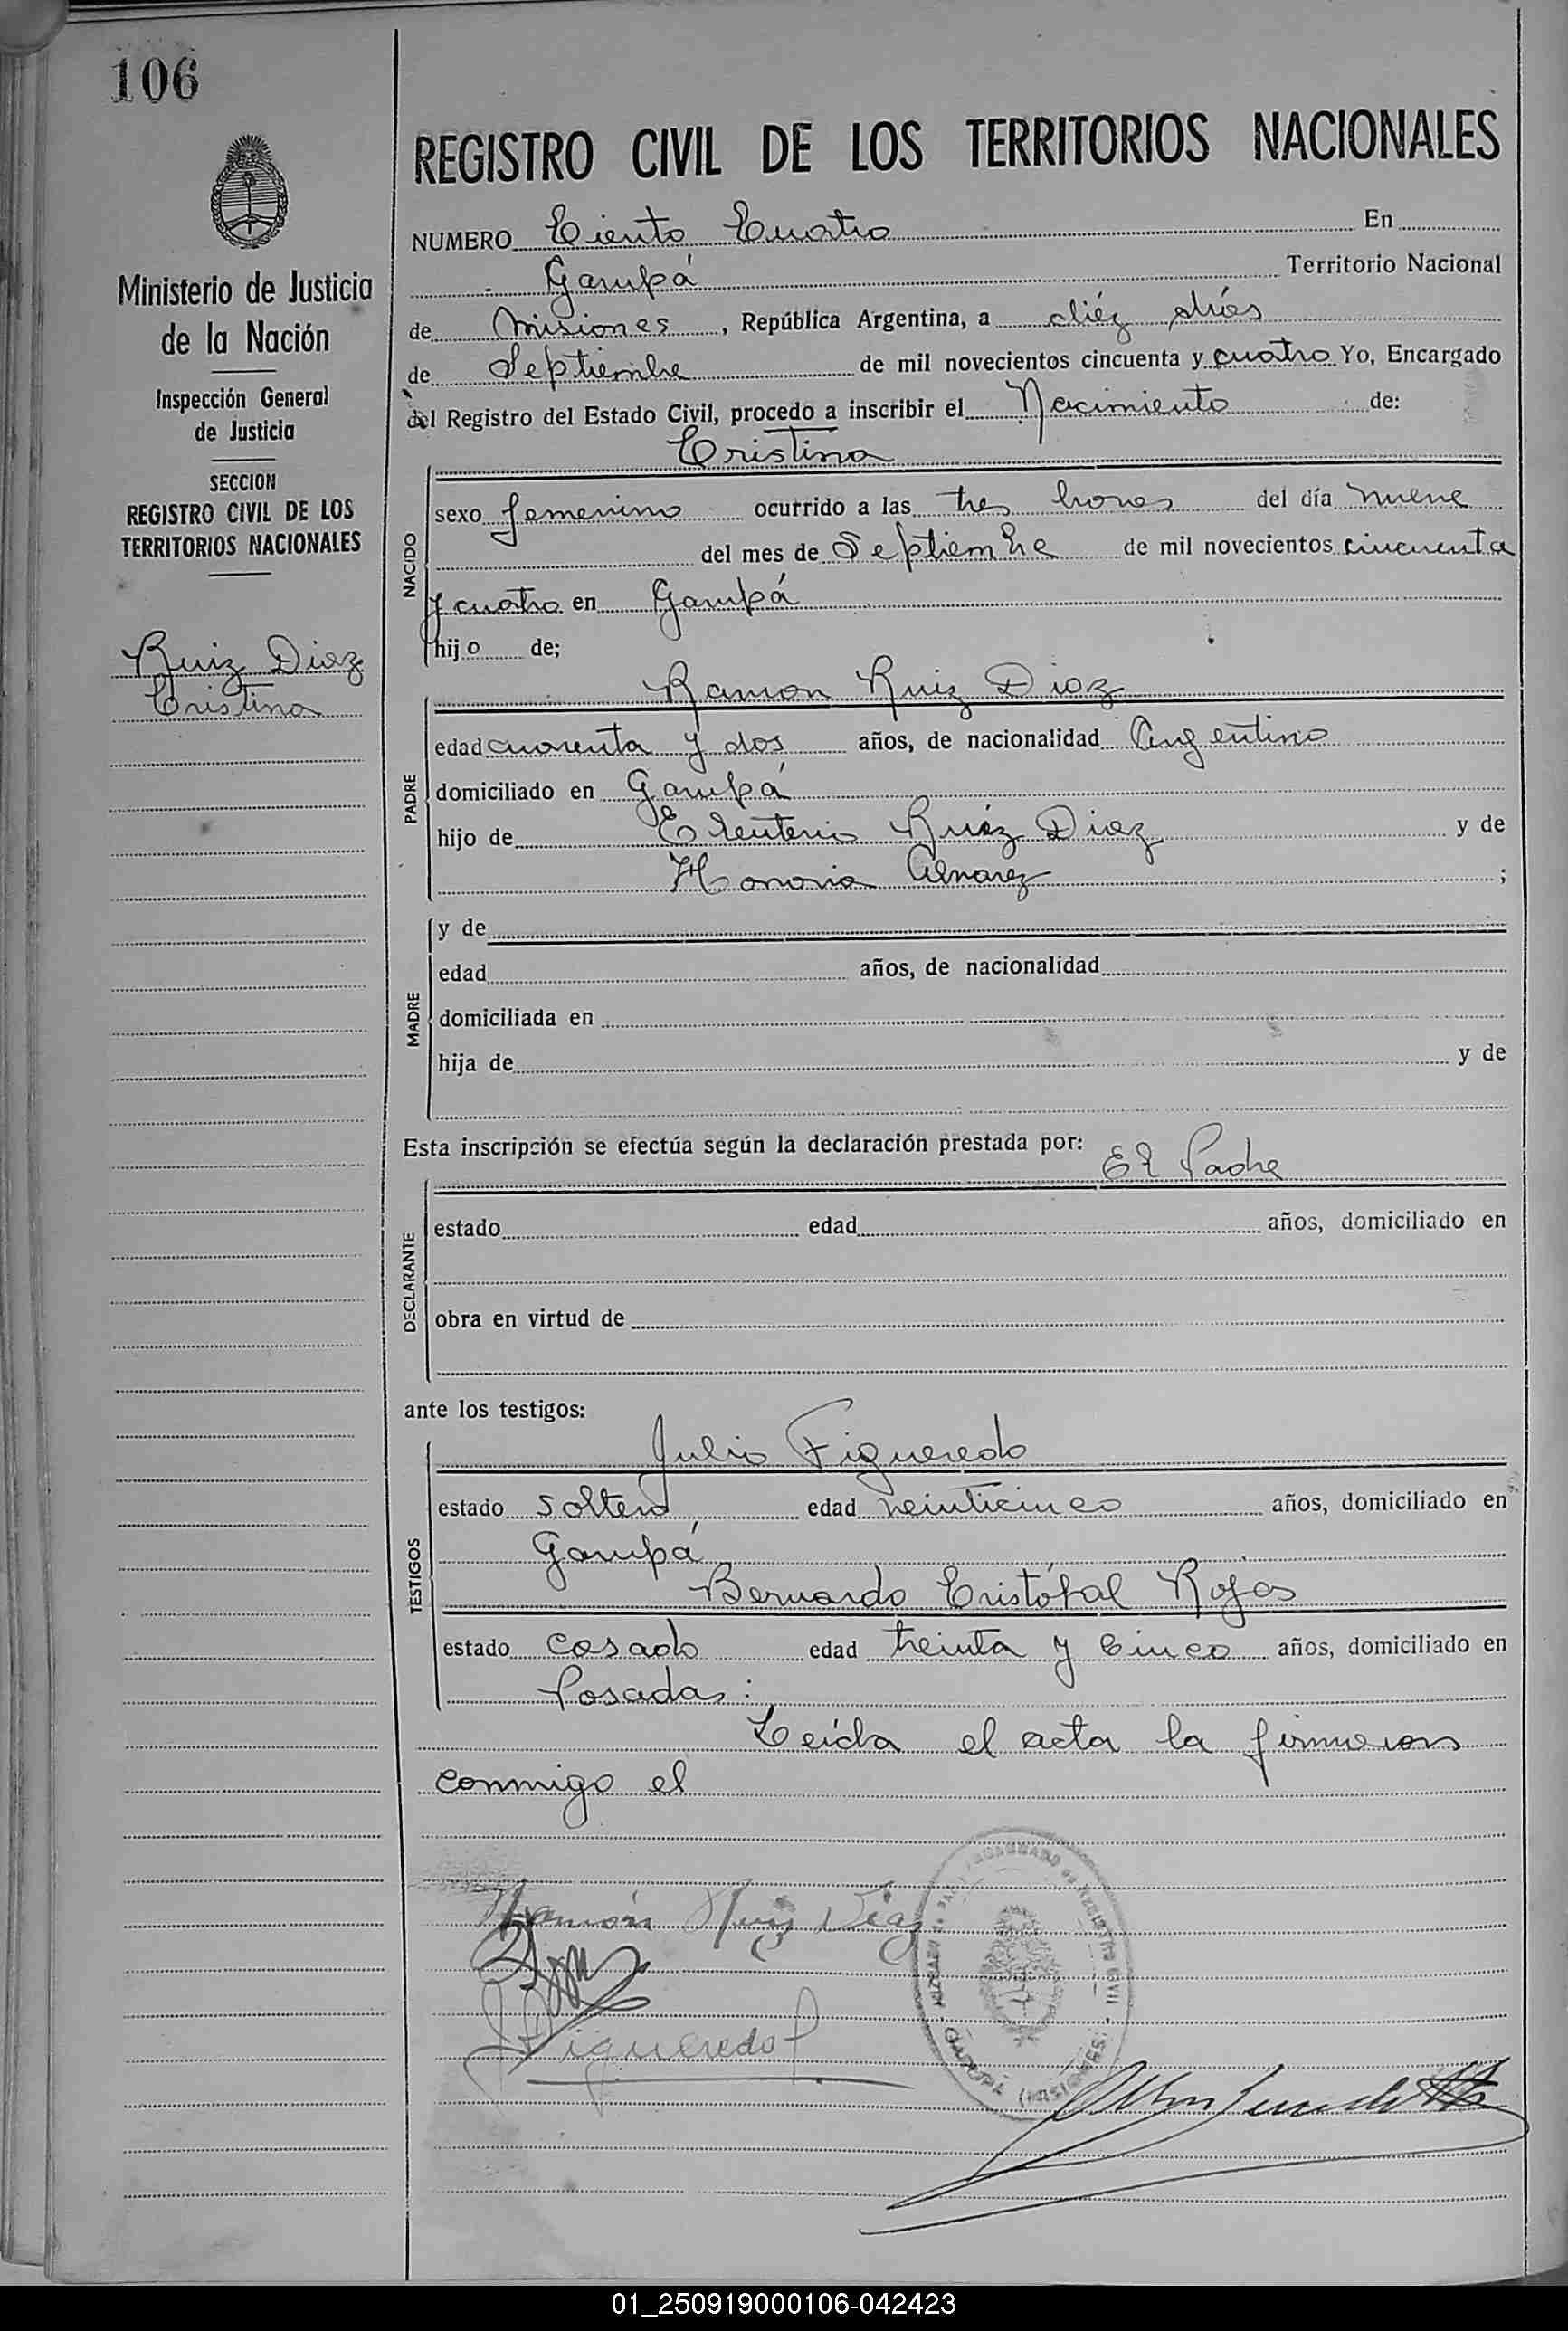 106
REGISTRO CIVIL DE LOS TERRITORIOS NACIONALES
NUMERO Ciento Cuatro En
Garupá Territorio Nacional
de Misiones, República Argentina, a diéz días
de Septiembre de mil novecientos cincuenta y cuatro Yo, Encargado
del Registro del Estado Civil, procedo a inscribir el Nacimiento de:
Cristina
NACIDO
sexo femenino ocurrido a las tres horas del día nueve
del mes de Septiembre de mil novecientos cincuenta
y cuatro en Garupá
hijo de;
Ramon Ruiz Diaz
PADRE
edad cuarenta y dos años, de nacionalidad Argentino
domiciliado en Garupá
hijo de Eleuterio Ruiz Diaz y de
Honoria Alvarez ;
MADRE
y de
edad años, de nacionalidad
domiciliada en
hija de y de
Esta inscripción se efectúa según la declaración prestada por: El Padre
DECLARANTE
estado edad años, domiciliado en
obra en virtud de
ante los testigos:
TESTIGOS
Julio Figueredo
estado soltero edad veinticinco años, domiciliado en
Garupá
Bernardo Cristóbal Rojas
estado casado edad treinta y cinco años, domiciliado en
Posadas:
Leída el acta la firmaron
conmigo el
Ramón Ruiz Diaz
Figueredo
Ministerio de Justicia
de la Nación
Inspección General
de Justicia
SECCION
REGISTRO CIVIL DE LOS
TERRITORIOS NACIONALES
Ruiz Diaz
Cristina
01_250919000106-042423